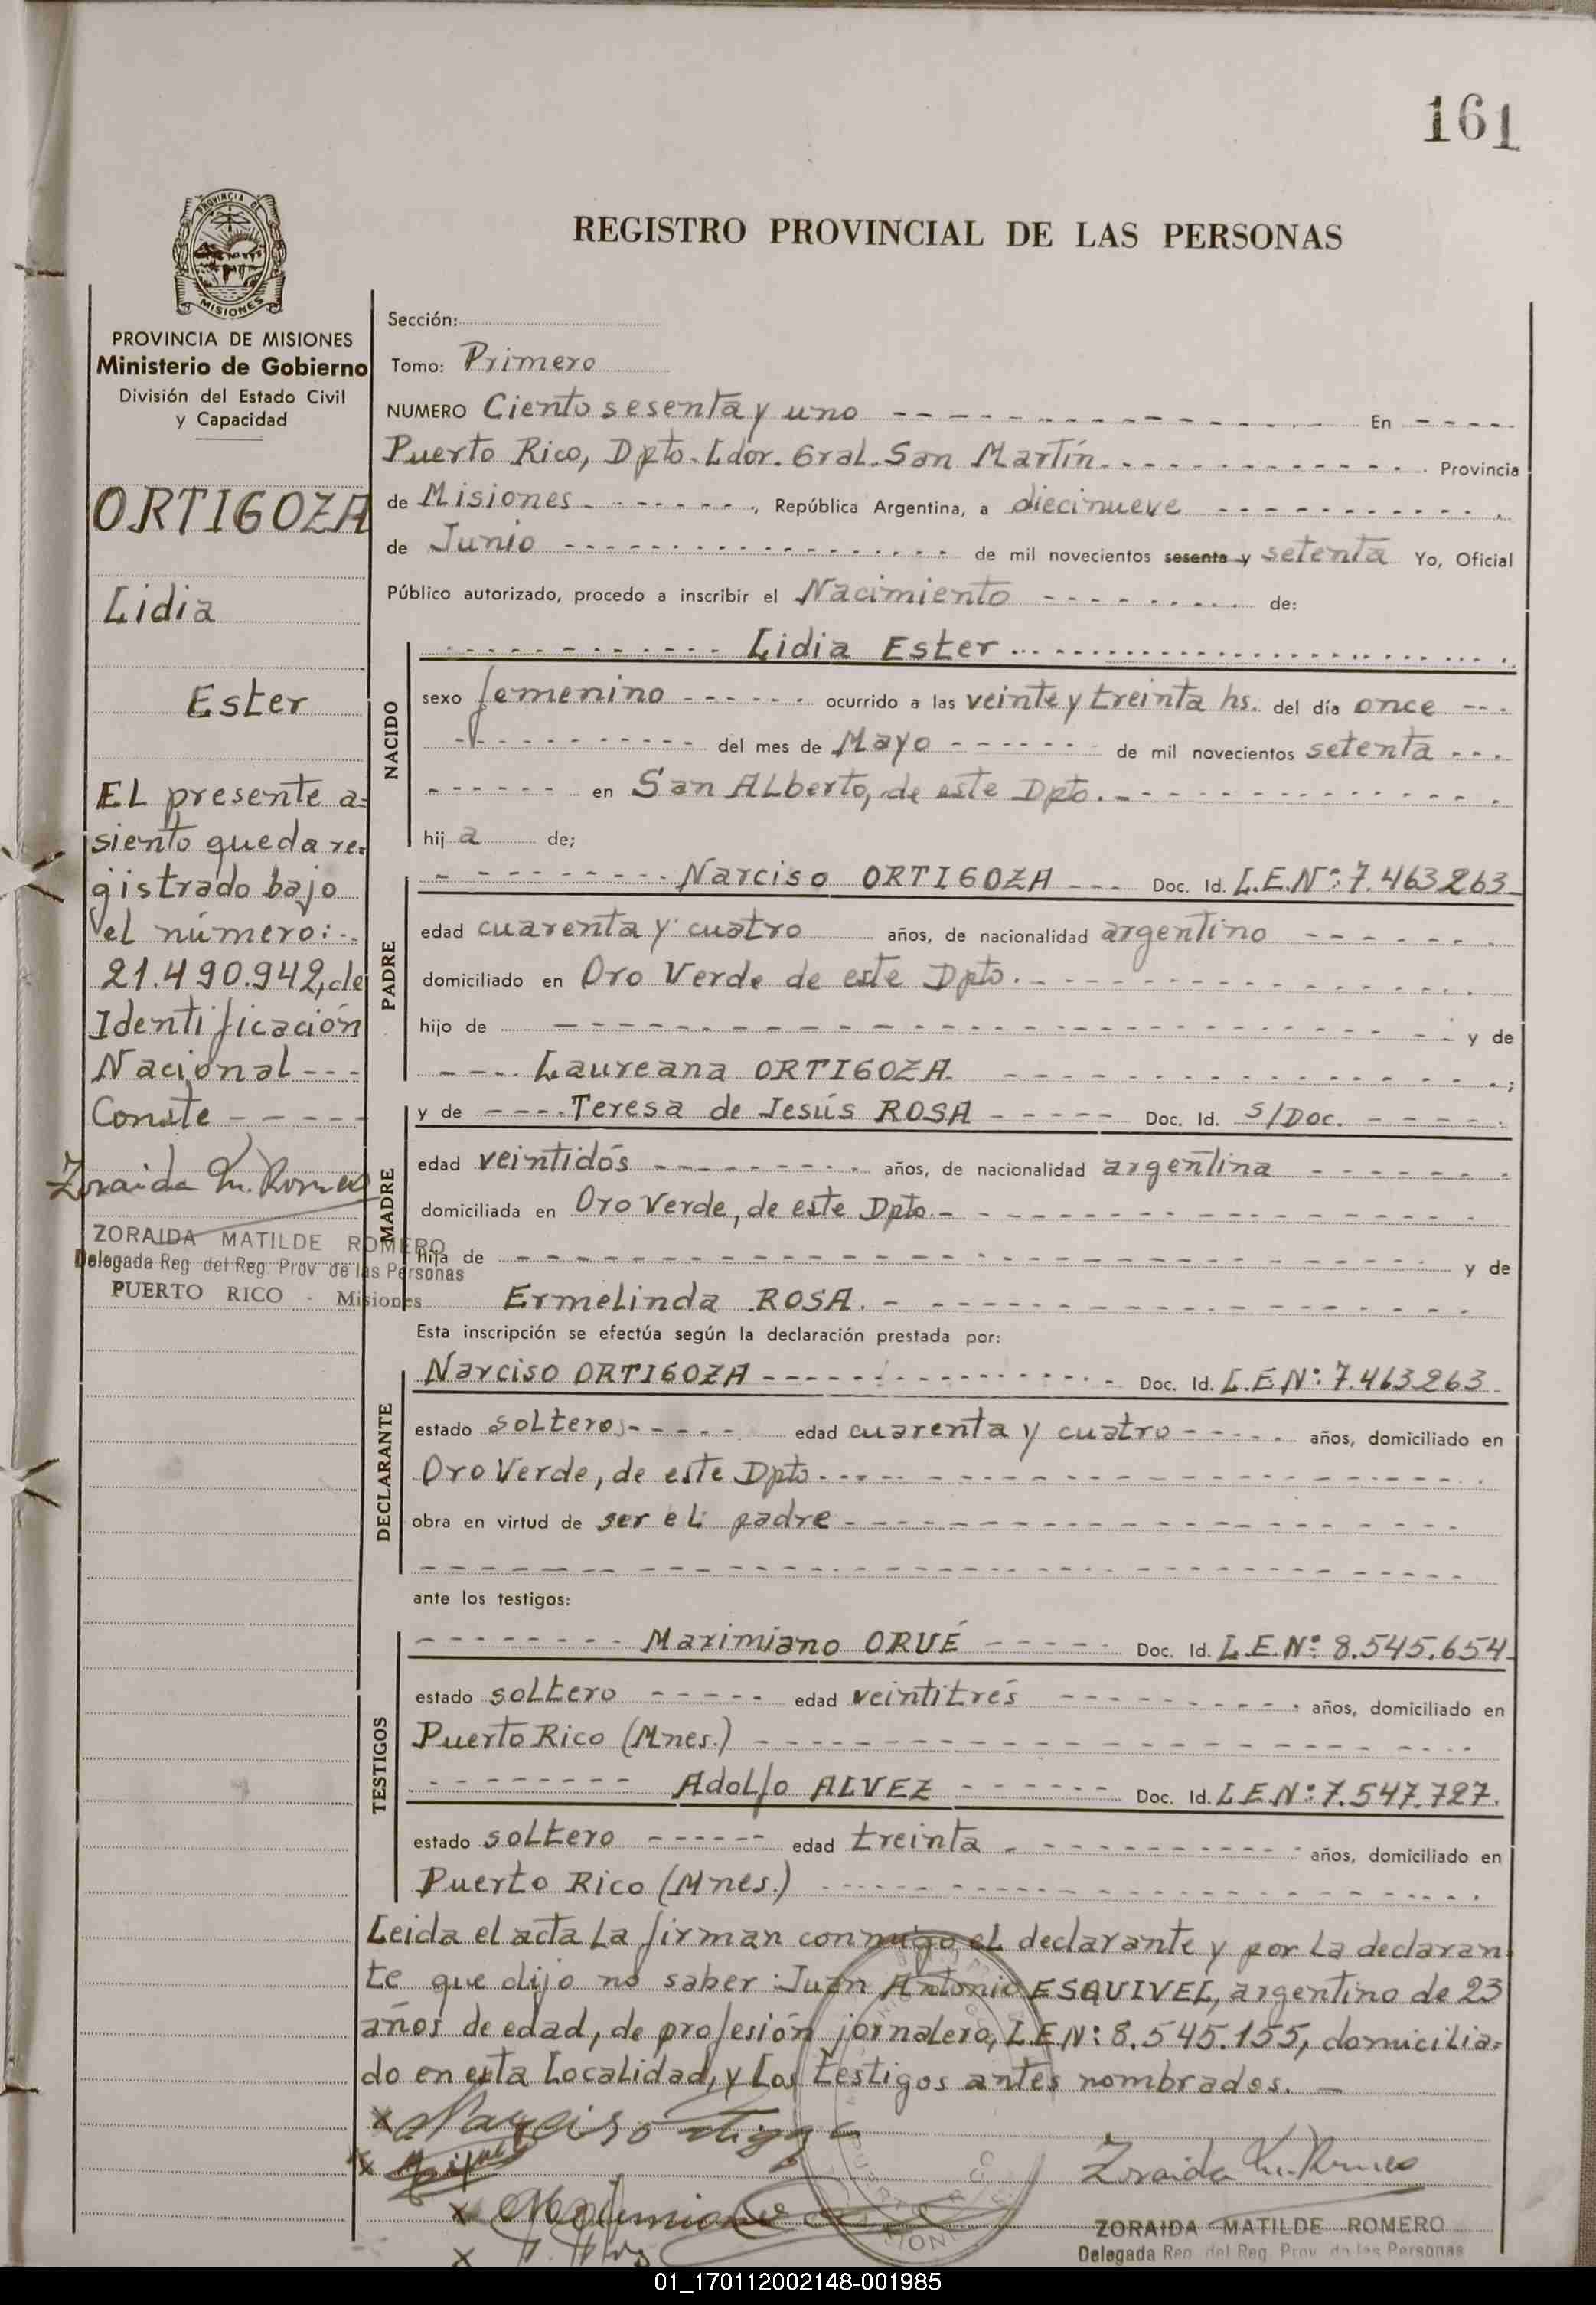 161
REGISTRO PROVINCIAL DE LAS PERSONAS
PROVINCIA DE
MISIONES
PROVINCIA DE MISIONES
Ministerio de Gobierno
División del Estado Civil
y Capacidad
ORTIGOZA
Lidia
Ester
EL presente a=
siento queda re=
gistrado bajo
el número:
21.490.942, de
Identificación
Nacional
Conste
Zoraida M. Romero
ZORAIDA MATILDE ROMERO
Delegada Reg. del Reg. Prov. de las Personas
PUERTO RICO - Misiones
Sección:
Tomo: Primero
NUMERO Ciento sesenta y uno En
Puerto Rico, Dpto. Ldor. Gral. San Martín Provincia
de Misiones, República Argentina, a diecinueve
de Junio de mil novecientos sesenta y setenta Yo, Oficial
Público autorizado, procedo a inscribir el Nacimiento de:
Lidia Ester
NACIDO
sexo femenino ocurrido a las veinte y treinta hs. del día once
del mes de Mayo de mil novecientos setenta
en San Alberto, de este Dpto.
hij a de;
PADRE
Narciso ORTIGOZA Doc. Id. L.E.Nº: 7.463263
edad cuarenta y cuatro años, de nacionalidad argentino
domiciliado en Oro Verde de este Dpto.
hijo de y de
Laureana ORTIGOZA ;
MADRE
y de Teresa de Jesús ROSA Doc. Id. S/Doc.
edad veintidós años, de nacionalidad argentina
domiciliada en Oro Verde, de este Dpto.
hija de y de
Ermelinda ROSA.
Esta inscripción se efectúa según la declaración prestada por:
DECLARANTE
Narciso ORTIGOZA Doc. Id. L.E.Nº: 7.463263
estado soltero edad cuarenta y cuatro años, domiciliado en
Oro Verde, de este Dpto.
obra en virtud de ser el padre
ante los testigos:
TESTIGOS
Maximiano ORUÉ Doc. Id. L.E.Nº: 8.545.654
estado soltero edad veintitrés años, domiciliado en
Puerto Rico (Mnes.)
Adolfo ALVEZ Doc. Id. L.E.Nº: 7.547.727.
estado soltero edad treinta años, domiciliado en
Puerto Rico (Mnes.)
Leida el acta la firman conmigo el declarante y por la declaran
te que dijo no saber: Juan Antonio ESQUIVEL, argentino de 23
años de edad, de profesión jornalero, L.E.N: 8.545.155, domicilia=
do en esta Localidad, y los testigos antes nombrados.
x Narciso Ortigoza
x
x Maximiano
x
Zoraida M. Romero
ZORAIDA MATILDE ROMERO
Delegada Reg. del Reg. Prov. de las Personas
01_170112002148-001985